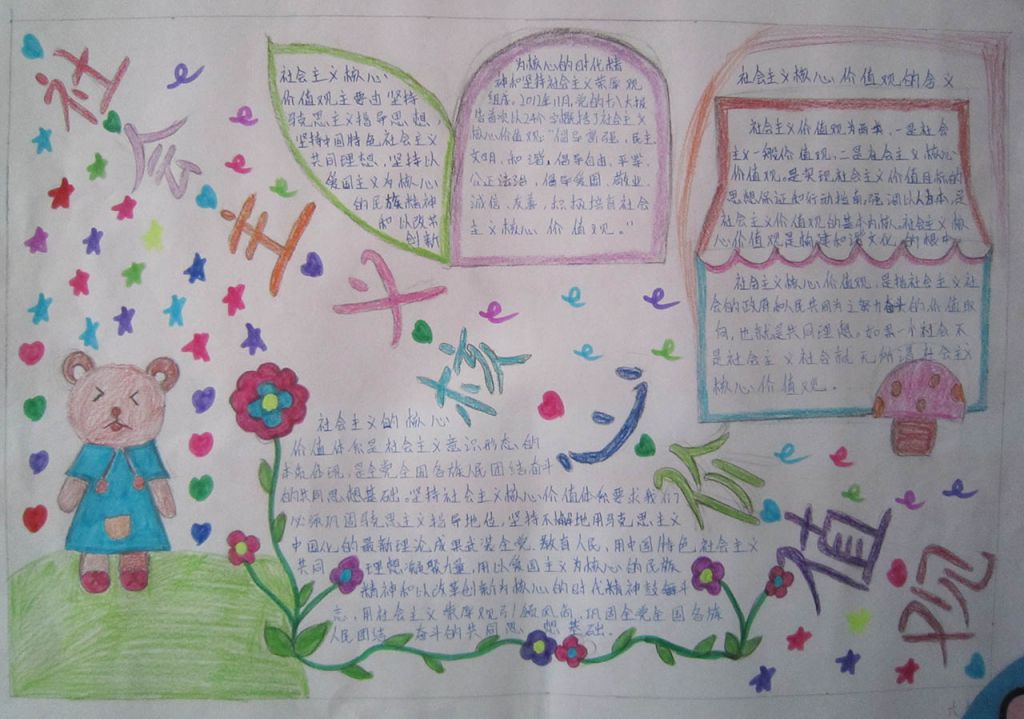 社会主义核心价值观
社会主义核心
价值观主要由坚持
马克思主义指导思想，
坚持中国特色社会主义
共同理想，坚持以
爱国主义为核心
的民族精神
和以改革
创新
为核心的时代精
神和坚持社会主义荣辱观
组成。2012年11月，党的十八大报
告首次以24个字概括了社会主义
核心价值观："倡导富强、民主、
文明、和谐，倡导自由、平等、
公正法治，倡导爱国、敬业、
诚信、友善，积极培育社会
主义核心价值观。"
社会主义核心价值观的含义
社会主义价值观为两类，一是社会
主义一般价值观，二是社会主义核心
价值观，是实现社会主义价值目标的
思想保证和行动指南，强调以人为本，是
社会主义价值观的基本内核。社会主义核
心价值观是构建和谐文化的根本
社会主义核心价值观，是指社会主义社
会的政府和人民共同为之努力奋斗的价值取
向，也就是共同理想。如果一个社会不
是社会主义社会就无所谓社会主义
核心价值观。
社会主义的核心
价值体系是社会主义意识形态的
本质体现，是全党全国各族人民团结奋斗
的共同思想基础。坚持社会主义核心价值体系要求我们
必须巩固马克思主义指导地位，坚持不懈地用马克思主义
中国化的最新理论成果武装全党、教育人民，用中国特色社会主义
共同理想凝聚力量，用以爱国主义为核心的民族
精神和以改革创新为核心的时代精神鼓舞斗
志，用社会主义荣辱观引领风尚，巩固全党全国各族
人民团结奋斗的共同思想基础。